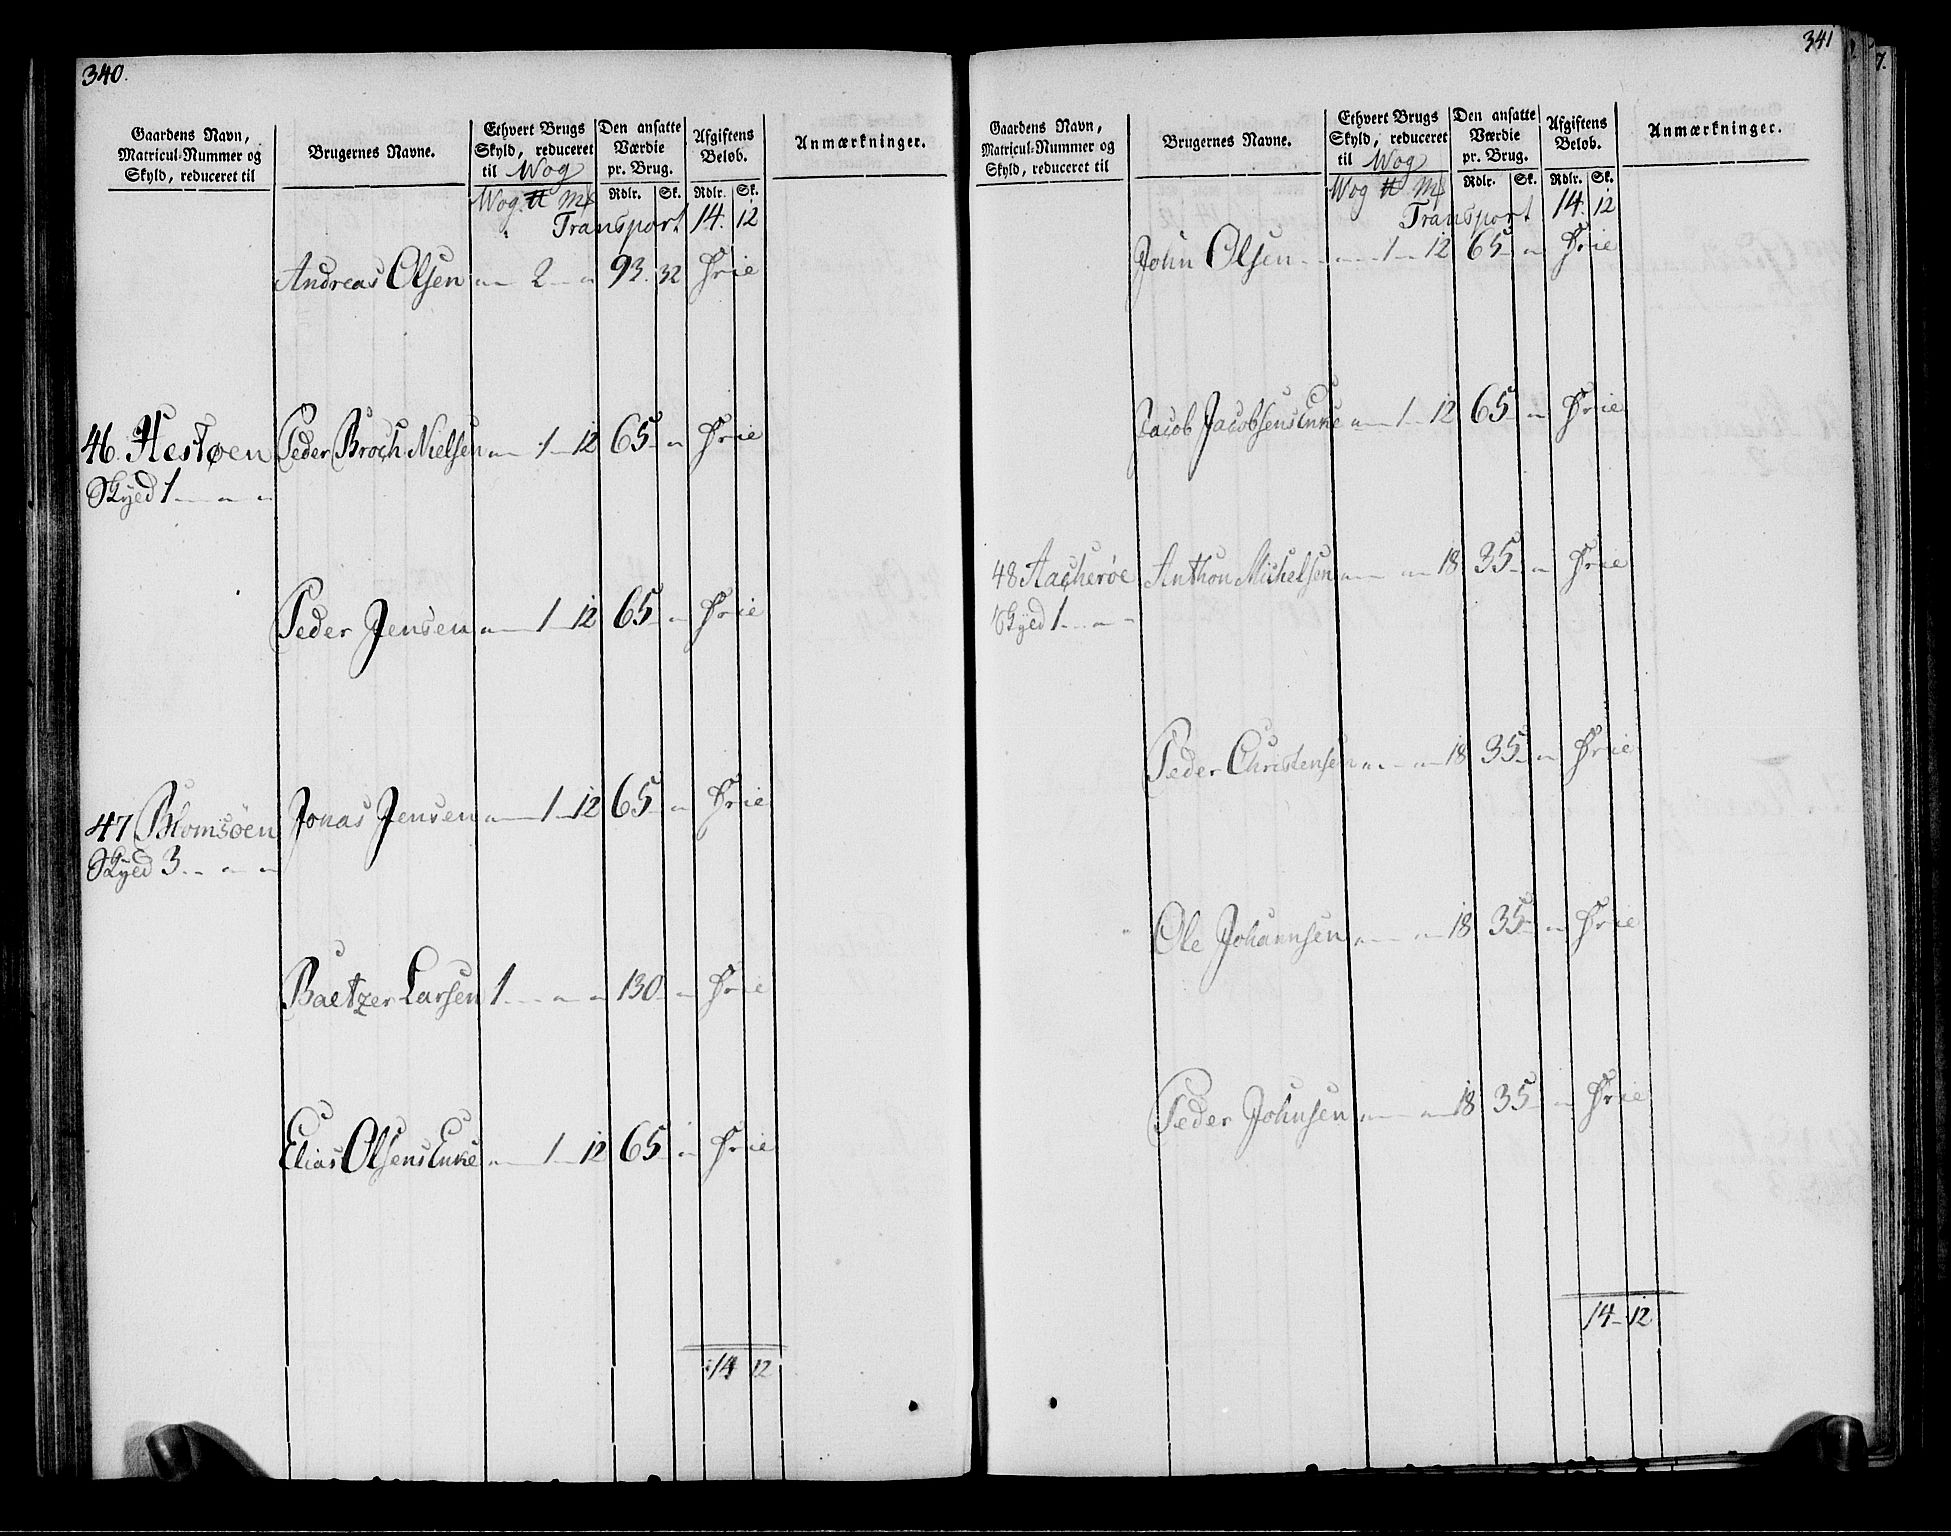 340.
Gaardens Navn, Matricul-Nummer og Skyld, reduceret til
Brugernes Navne.
Ethvert Brugs Skyld, reduceret til Wog
Den ansatte Værdie pr. Brug.
Afgiftens Beløb.
Anmærkninger.
Wog. ℔ Mk Rdlr. Sk. Rdlr. Sk.
Transport 14. 12
Andreas Olsen „ 2 „ 93. 32 Frie
46. Hestøen Peder Broch Nielsen „ 1 12 65 „ Frie
Skyld 1 „ „
Peder Jensen „ 1 12 65 „ Frie
47 Blomsöen Jonas Jensen „ 1 12 65 „ Frie
Skyld 3 „ „
Baltzer Larsen 1 „ „ 130 „ Frie
Elias Olsens Enke „ 1 12 65 „ Frie
14 12
341
Gaardens Navn, Matricul-Nummer og Skyld, reduceret til
Brugernes Navne.
Ethvert Brugs Skyld, reduceret til Wog
Den ansatte Værdie pr. Brug.
Afgiftens Beløb.
Anmærkninger.
Wog ℔ Mk Rdlr. Sk. Rdlr. Sk.
Transport 14. 12
John Olsen „ 1 12 65 „ Frie
Jacob Jacobsens Enke „ 1 12 65 „ Frie
48 Aacherøe Anthon Michelsen „ „ 18 35 „ Frie
Skyld 1 „ „
Peder Christensen „ „ 18 35 „ Frie
Ole Johannsen „ „ 18 35 „ Frie
Peder Johnsen „ „ 18 35 „ Frie
14 12